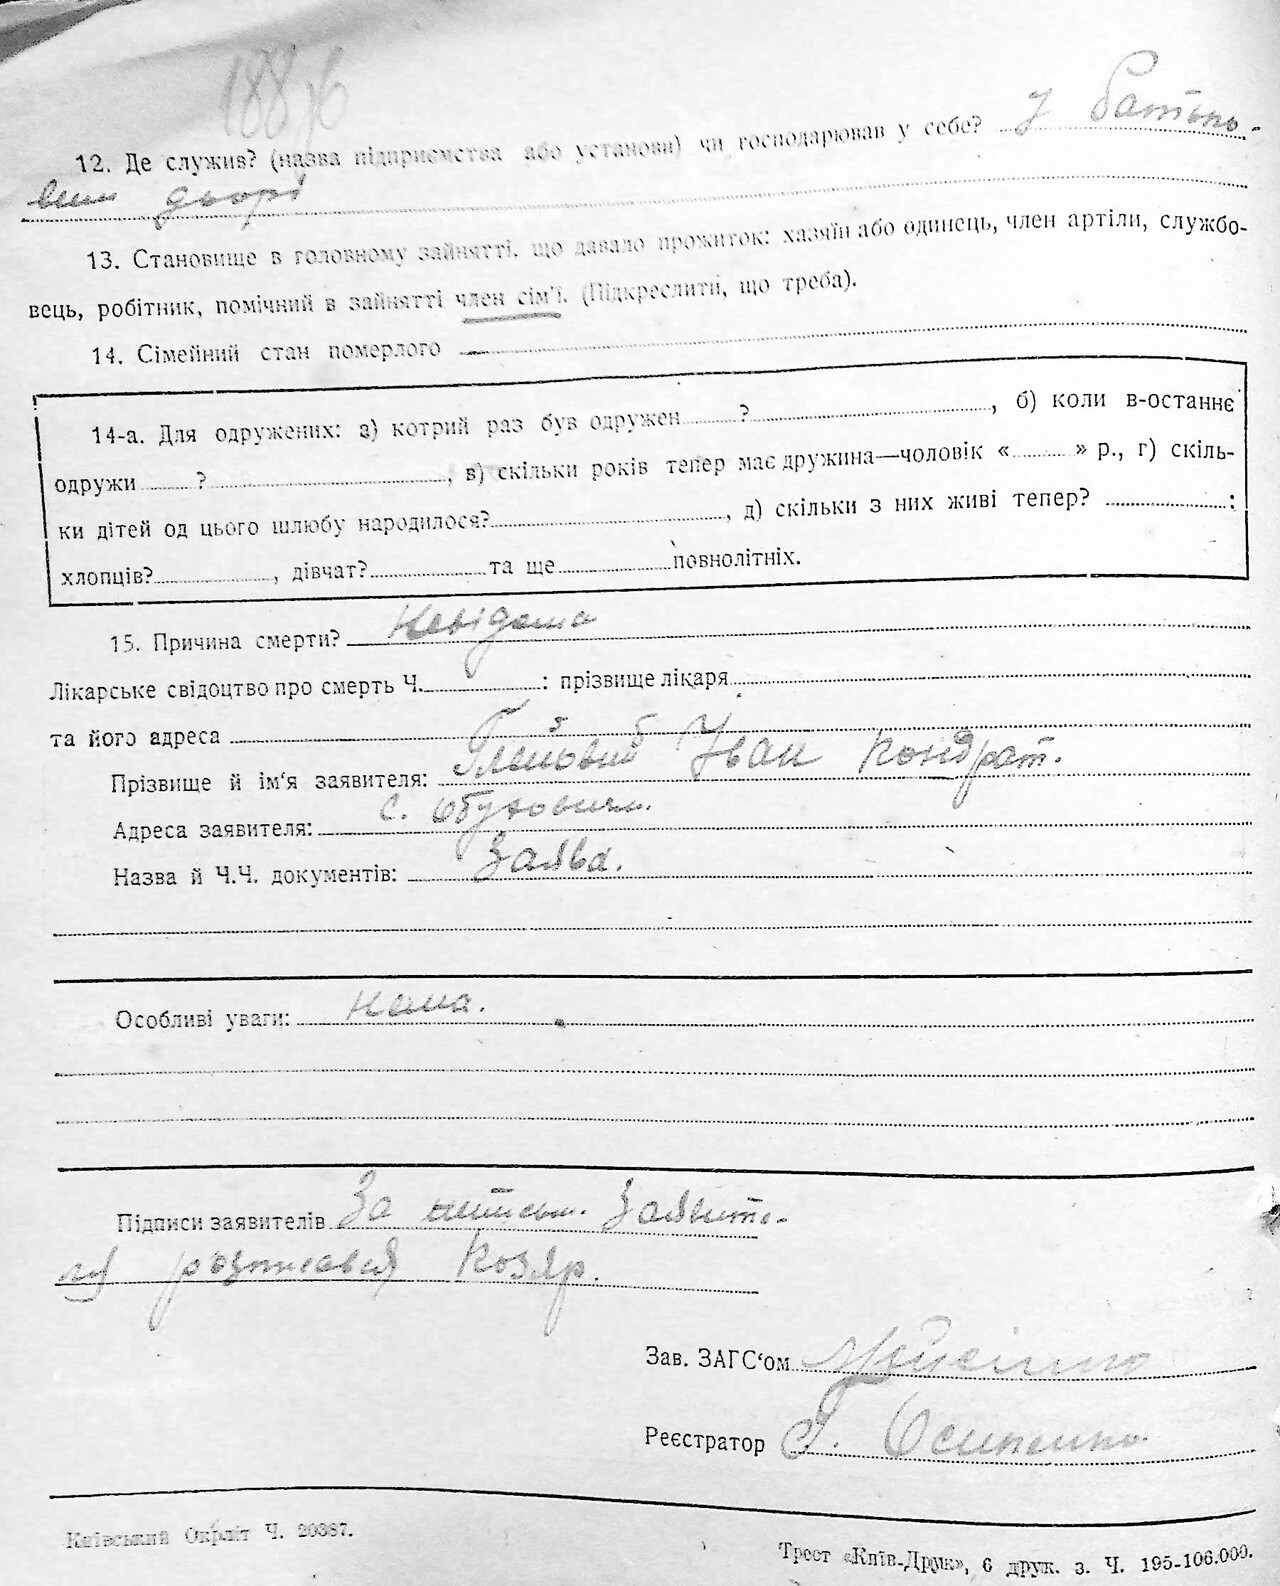 188 зв
12. Де служив? (назва підприємства або установи) чи господарював у себе? У батько-
вим дворі
13. Становище в головному зайнятті, що давало прожиток: хазяїн або одинець, член артіли, службо-
вець, робітник, помічний в зайнятті член сім'ї. (Підкреслити, що треба).
14. Сімейний стан померлого —
14-а. Для одружених: а) котрий раз був одружен ? , б) коли в-останнє
одружи ? , в) скільки років тепер має дружина—чоловік « » р., г) скіль-
ки дітей од цього шлюбу народилося? , д) скільки з них живі тепер? :
хлопців? , дівчат? та ще повнолітніх.
15. Причина смерти? Невідома
Лікарське свідоцтво про смерть Ч. : прізвище лікаря
та його адреса
Прізвище й ім'я заявителя: Іван Кондрат.
Адреса заявителя: с. Обуховичи.
Назва й Ч.Ч. документів: Заява.
Особливі уваги: нема.
Підписи заявителів За неписьм. заявите-
ля розписався Козяр.
Зав. ЗАГС'ом
Реєстратор Г. Осипенко
Київський Окрліт Ч. 20387.
Трест «Київ-Друк», 6 друк. з. Ч. 195-106.000.